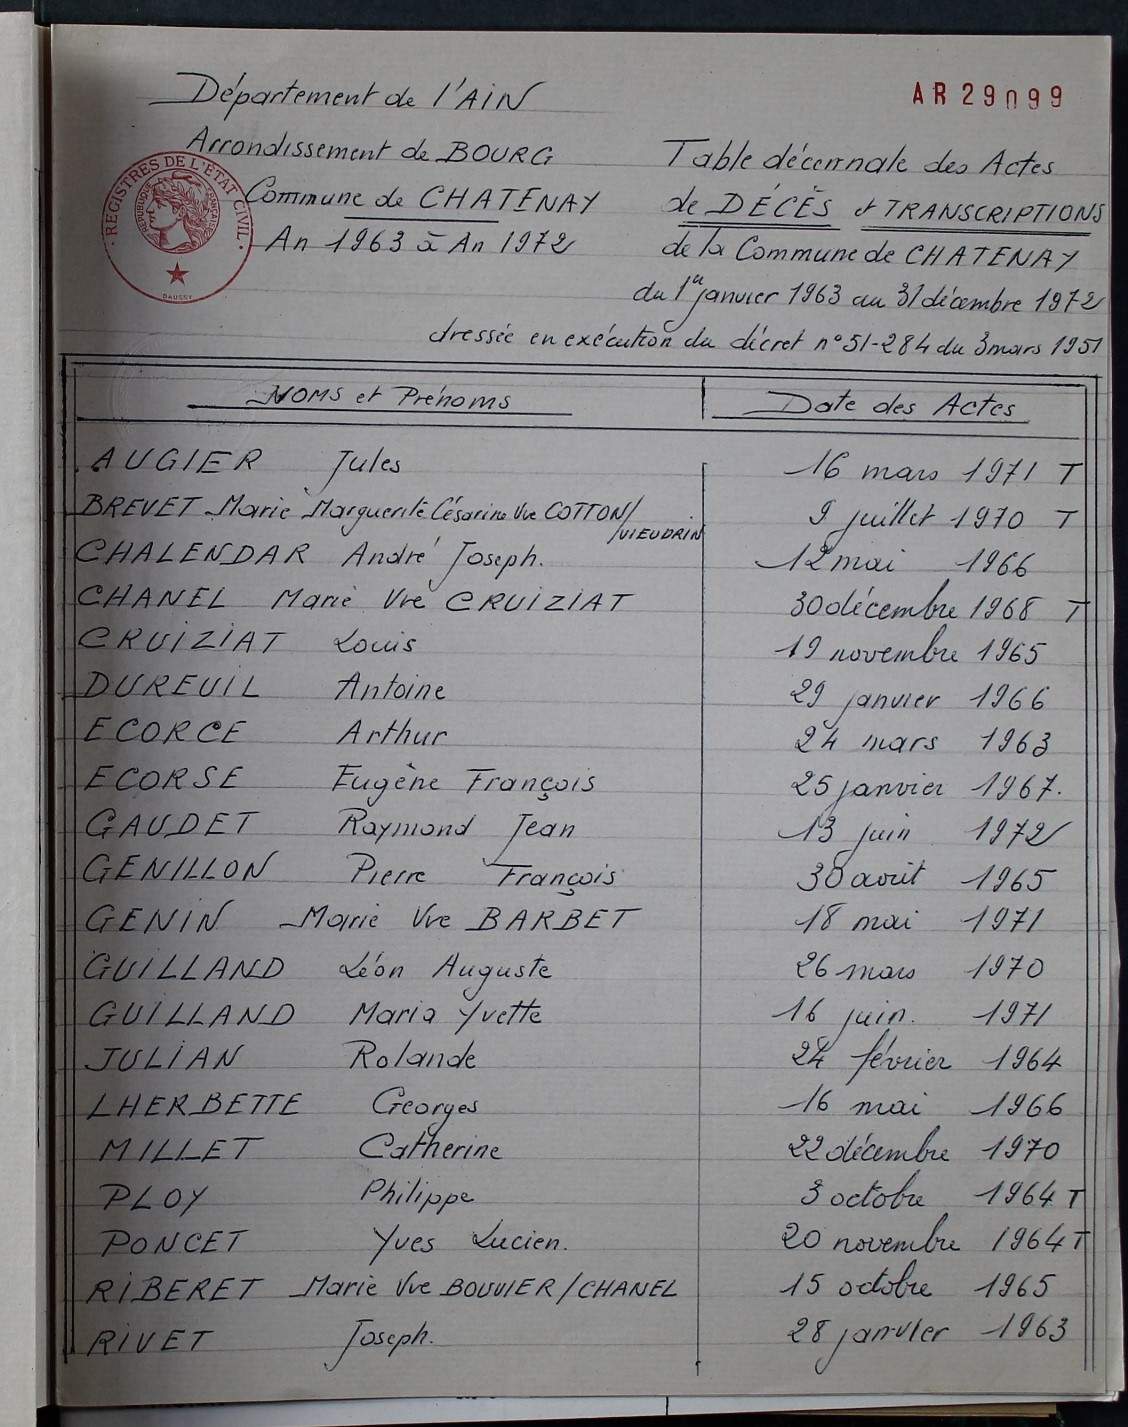 Département de l'AiN
AR 29099
Arrondissement de BOURG
Commune de CHATENAY
An 1963 à An 1972
REGISTRES DE L'ETAT CIVIL
REPUBLIQUE FRANÇAISE
DAUSSY
Table décennale des Actes
de DÉCÈS et TRANSCRIPTIONS
de la Commune de CHATENAY
du 1er janvier 1963 au 31 décembre 1972
dressée en exécution du décret n° 51-284 du 3 mars 1951
NOMS et Prénoms Date des Actes
AUGIER Jules 16 mars 1971 T
BREVET Marie Marguerite Césarine Vve COTTON/ 9 juillet 1970 T
/VIEUDRIN
CHALENDAR André Joseph. 12 mai 1966
CHANEL Marie Vve CRUiZIAT 30 décembre 1968 T
CRUiZiAT Louis 19 novembre 1965
DUREUIL Antoine 29 janvier 1966
ECORCE Arthur 24 mars 1963
ECORSE Eugène François 25 janvier 1967.
GAUDET Raymond Jean 13 juin 1972
GENILLON Pierre François 30 août 1965
GENIN Marie Vve BARBET 18 mai 1971
GUILLAND Léon Auguste 26 mars 1970
GUILLAND Maria Yvette 16 juin. 1971
JULiAN Rolande 24 février 1964
LHERBETTE Georges 16 mai 1966
MILLET Catherine 22 décembre 1970
PLOY Philippe 3 octobre 1964 T
PONCET Yves Lucien. 20 novembre 1964 T
RiBERET Marie Vve BOUVIER/CHANEL 15 octobre 1965
RIVET Joseph. 28 janvier 1963